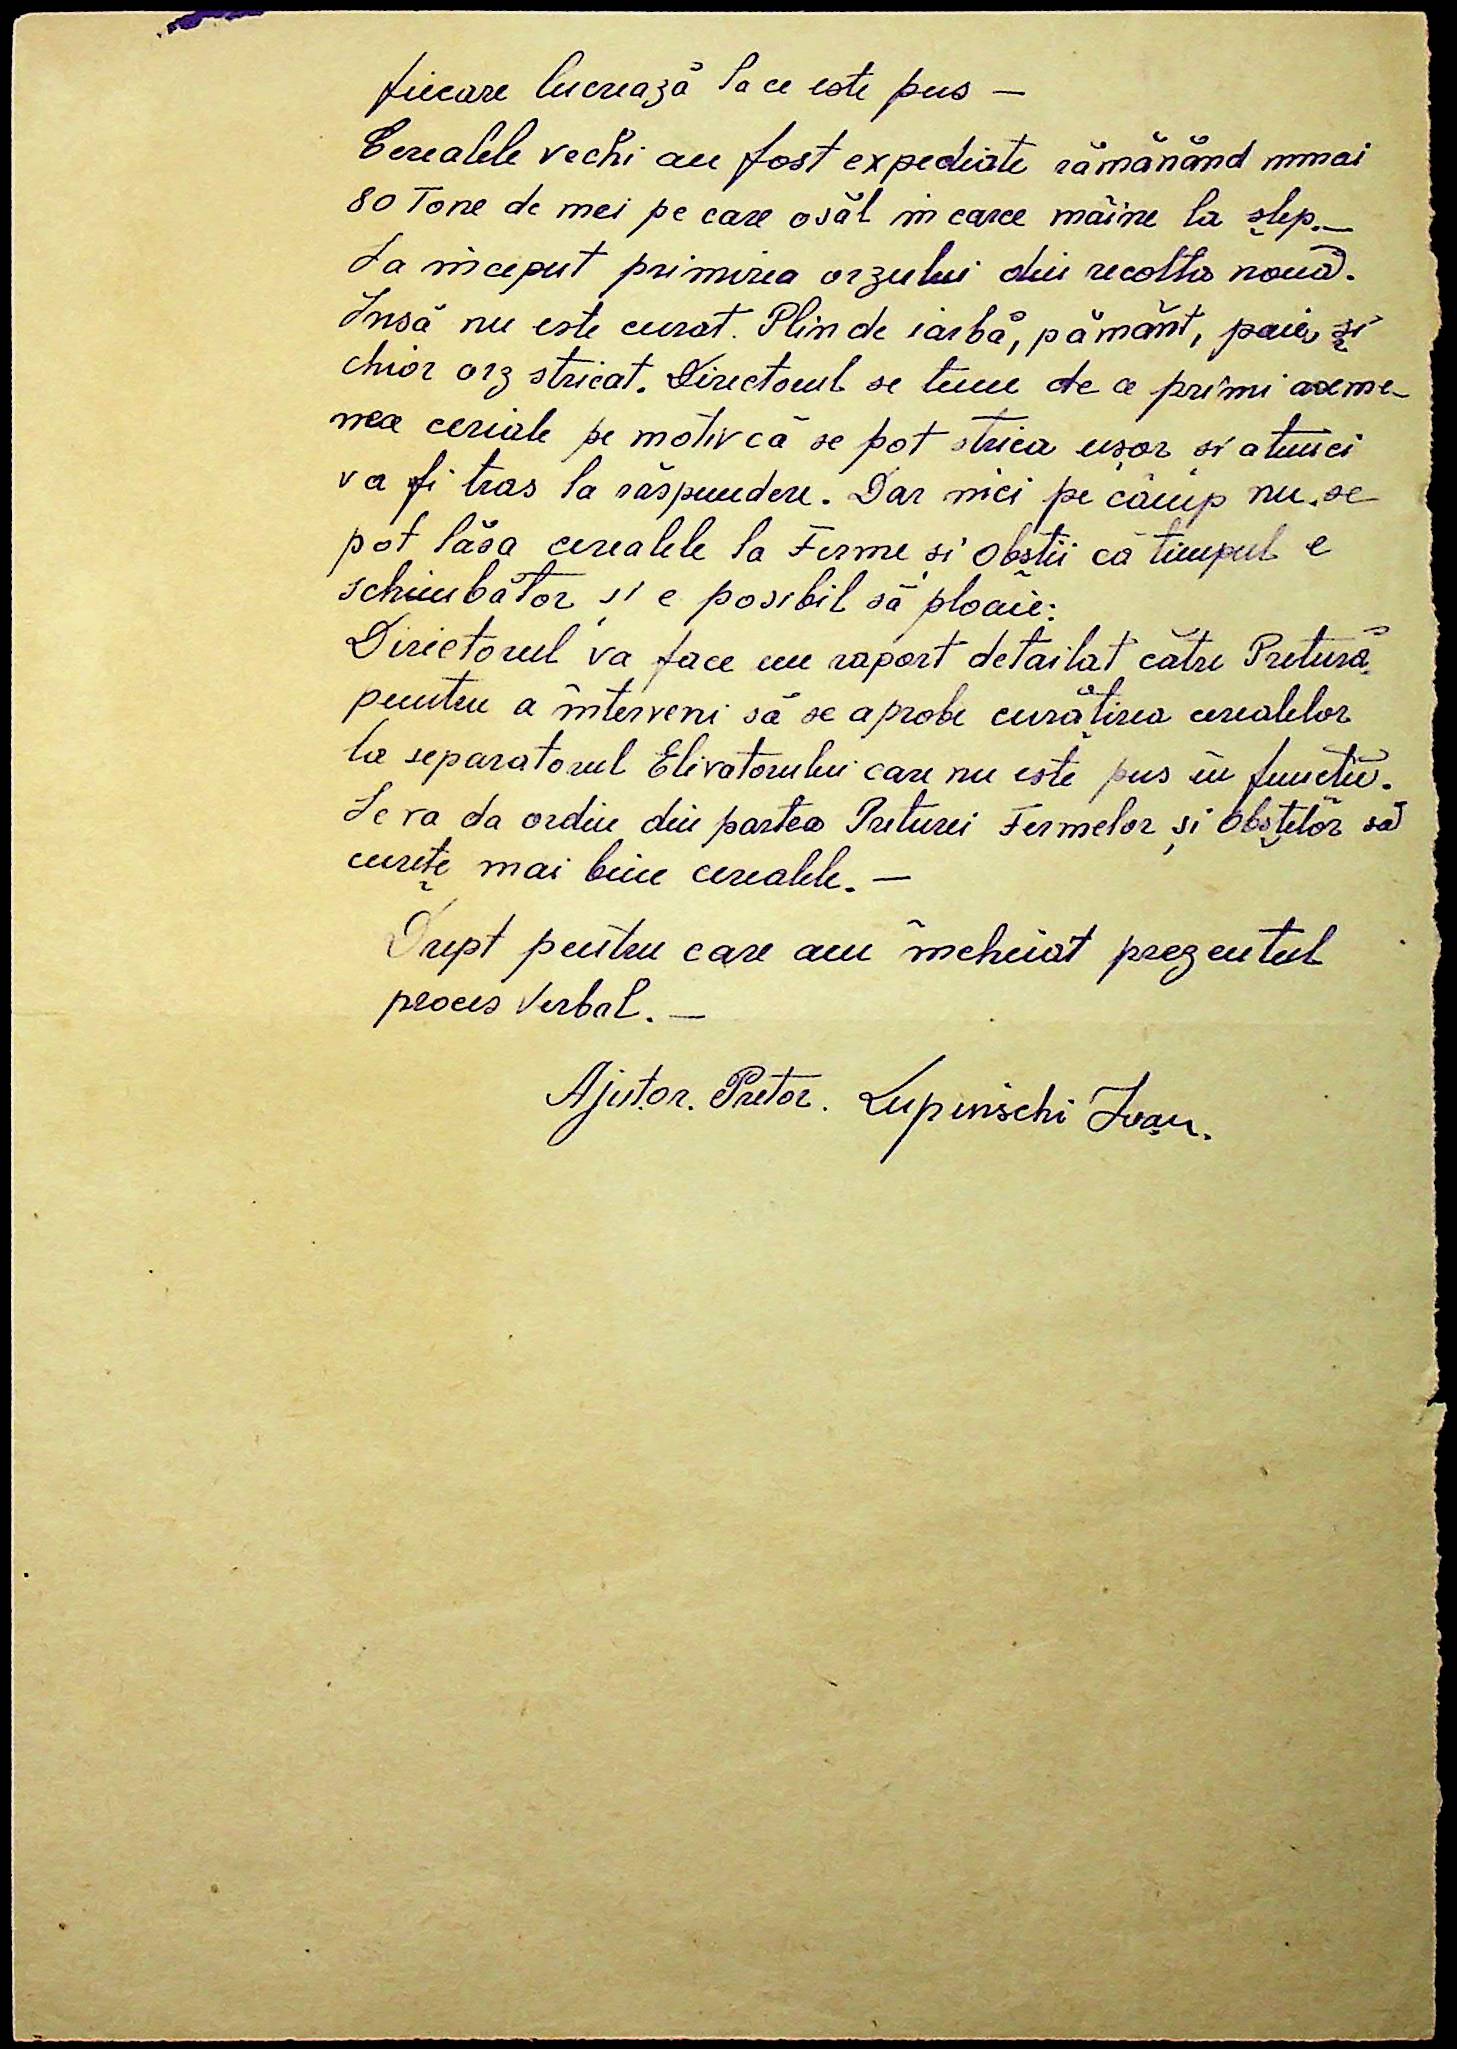 fiecare lucrează la ce este pus —
Cerealele vechi au fost expediate rămănănd numai
80 Tone de mei pe care osăl incarce mâine la șlep. —
Sa inceput primirea orzului din recolta nouă.
Însă nu este curat. Plin de iarbă, pământ, paie, și
chior orz stricat. Directorul se teme de a primi aseme-
nea ceriale pe motiv că se pot strica ușor si atunci
va fi tras la răspundere. Dar nici pe câmp nu se
pot lăsa cerealele la Ferme și Obștii că timpul e
schimbător și e posibil să ploaie:
Directorul va face un raport detailat către Pretură
pentru a interveni să se aprobe curățirea cerealelor
la separatorul Elivatorului care nu este pus în funcție.
Se va da ordin din partea Preturei Fermelor și Obștilor să
curețe mai bine cerealele. —
Drept pentru care am încheiat prezentul
proces verbal. —
Ajutor. Pretor. Lupinschi Ivan.